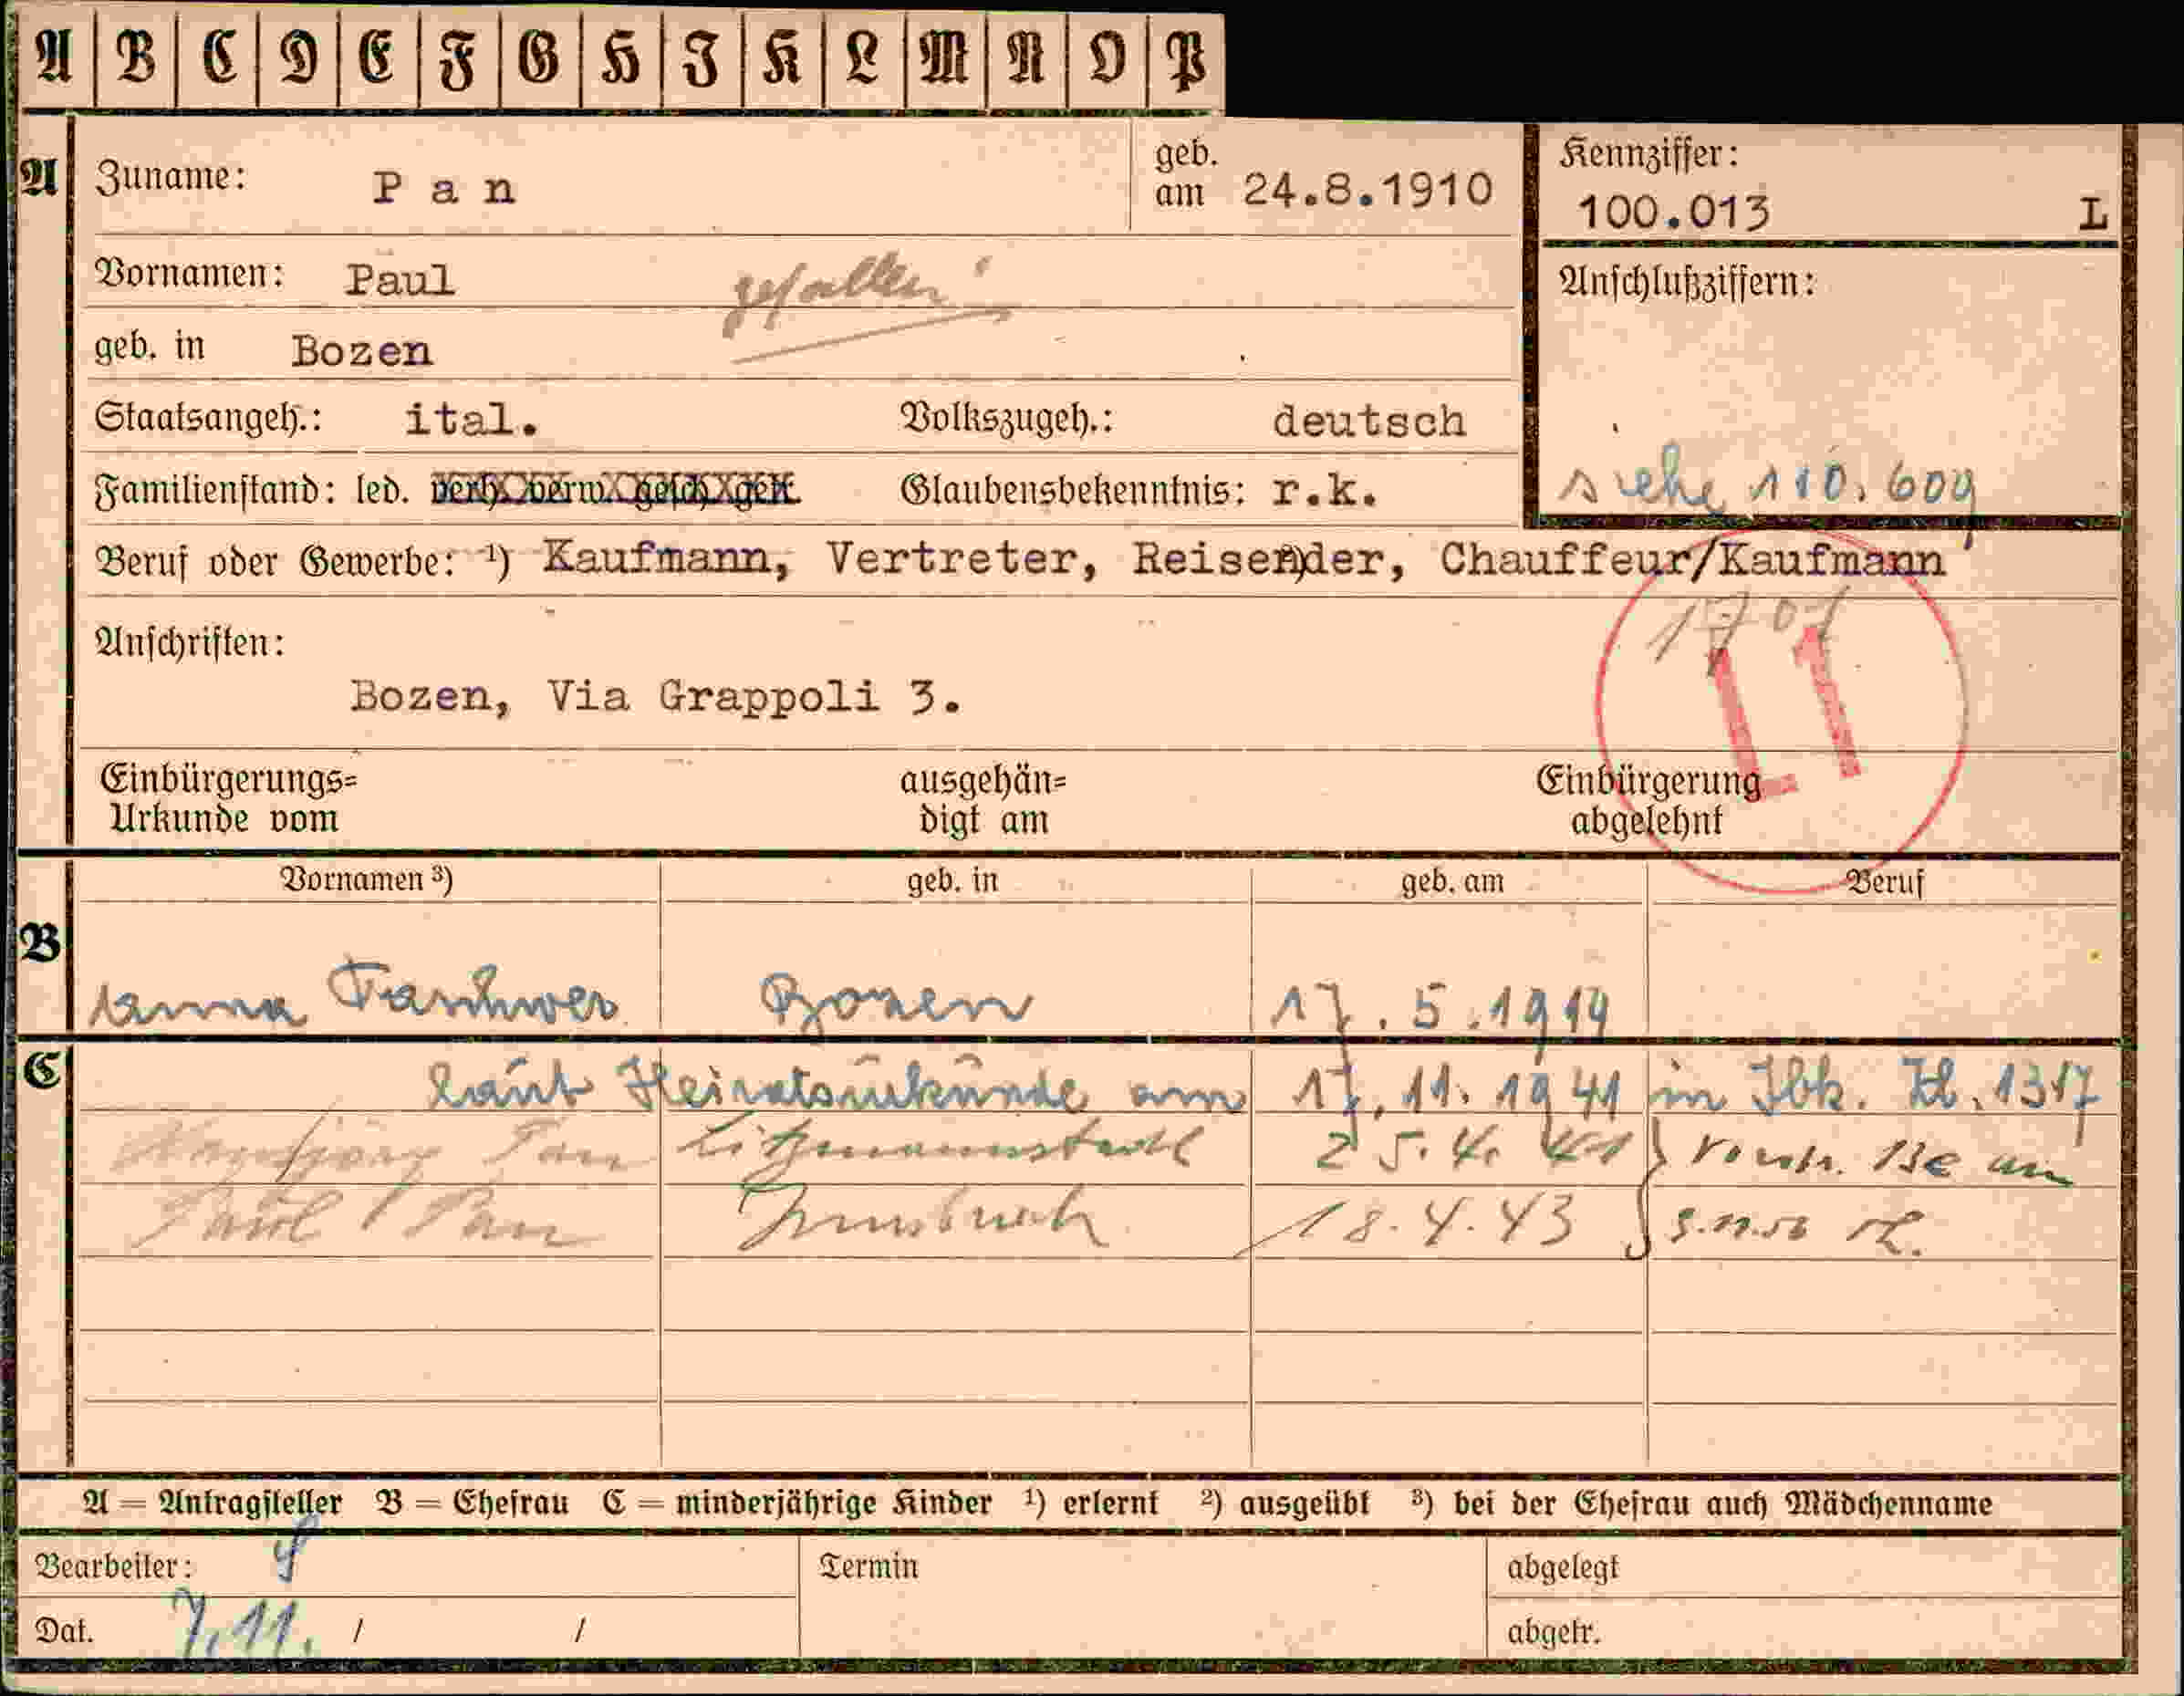 A B C D E F G H I K L M N O P
A Zuname: Pan geb. am 24.8.1910 Kennziffer: 100.013 L
Vornamen: Paul gefallen Anschlußziffern:
geb. in Bozen
Staatsangeh.: ital. Volkszugeh.: deutsch
Familienstand: led. verh. verw. gesch. getr. Glaubensbekenntnis: r.k. siehe 110.609
Beruf oder Gewerbe: ¹) Kaufmann, Vertreter, Reisender, Chauffeur/Kaufmann
Anschriften:
Bozen, Via Grappoli 3.
Einbürgerungs= ausgehän= Einbürgerung
Urkunde vom digt am abgelehnt
Vornamen ³) geb. in geb. am Beruf
B Anna Bozen 17.5.1914
C laut Heiratsurkunde am 17.11.1941 in Ibk. Zl. 1317
Pan Litzmannstadt 25.4.41 am
Paul Pan Innsbruck 18.4.43
A = Antragsteller B = Ehefrau C = minderjährige Kinder ¹) erlernt ²) ausgeübt ³) bei der Ehefrau auch Mädchenname
Bearbeiter: Termin abgelegt
Dat. 7.11. / / abgetr.